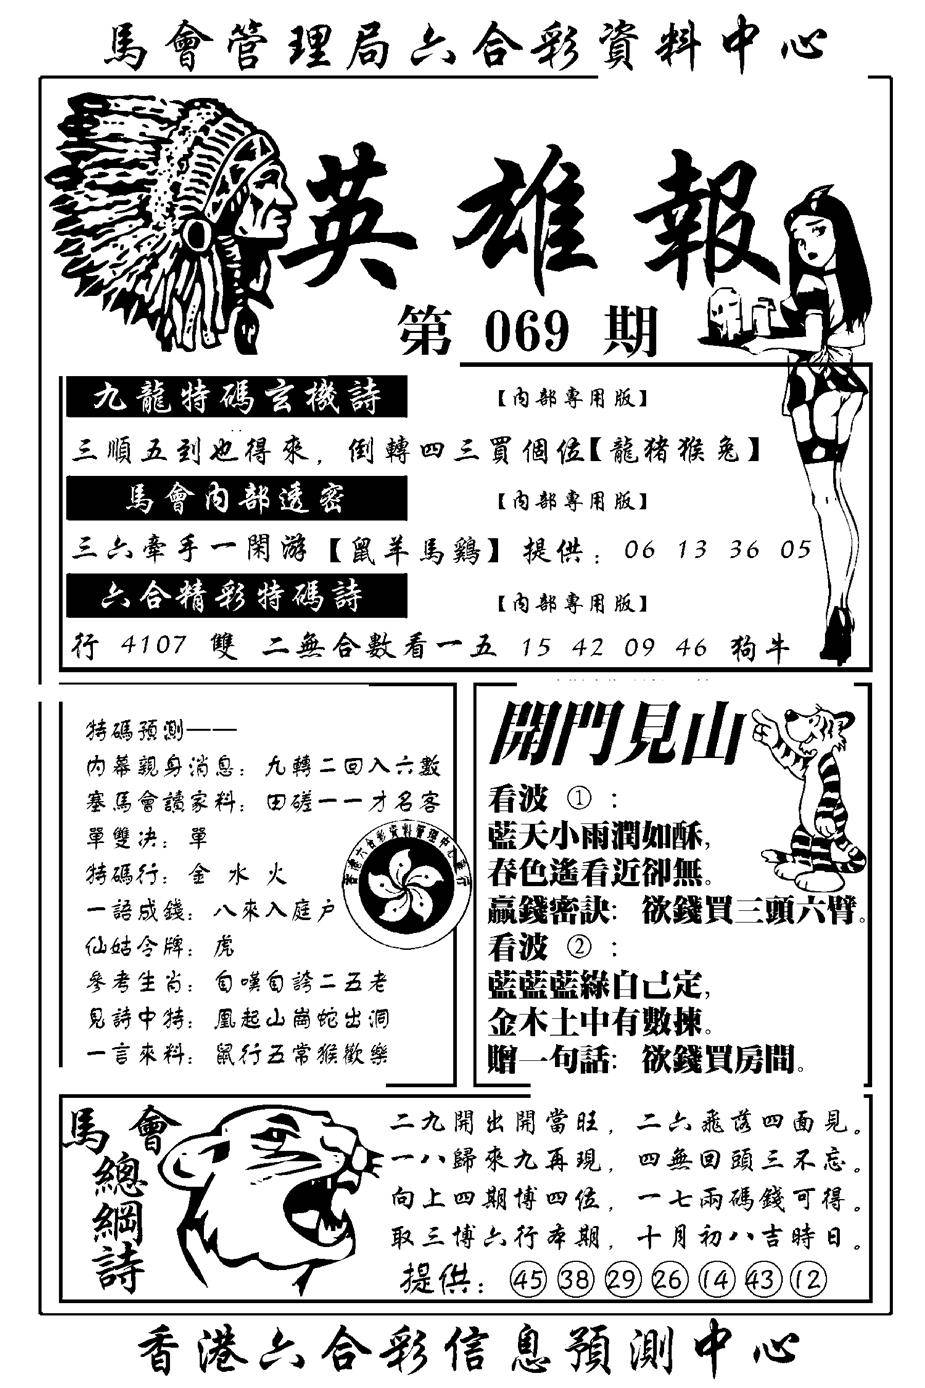 馬會管理局六合彩資料中心
英雄報
第 069 期
九龍特碼玄機詩 【內部專用版】
三順五到也得來，倒轉四三買個位【龍猪猴兔】
馬會內部透密 【內部專用版】
三六牽手一閑游【鼠羊馬鷄】提供：06 13 36 05
六合精彩特碼詩 【內部專用版】
行 4107 雙 二無合數看一五 15 42 09 46 狗牛
特碼預測——
內幕親身消息：九轉二回入六數
塞馬會讀家料：田磋一一才名客
單雙决：單
特碼行：金 水 火
一語成錢：八來入庭户
仙姑令牌：虎
參考生肖：自嘆自誇二五老
見詩中特：凰起山崗蛇出洞
一言來料：鼠行五常猴歡樂
開門見山
看波 ①：
藍天小雨潤如酥，
春色遙看近卻無。
贏錢密訣：欲錢買三頭六臂。
看波 ②：
藍藍藍綠自己定，
金木土中有數揀。
贈一句話：欲錢買房間。
馬會
總綱詩
二九開出開當旺，二六飛落四面見。
一八歸來九再現，四無回頭三不忘。
向上四期博四位，一七兩碼錢可得。
取三博六行本期，十月初八吉時日。
提供：㊺ ㊳ ㉙ ㉖ ⑭ ㊸ ⑫
香港六合彩信息預測中心